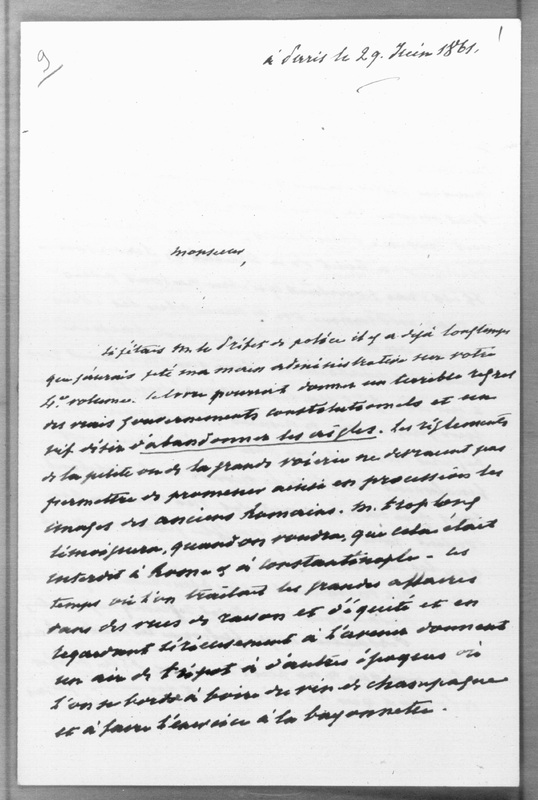 9
1
à Paris le 29. Juin 1861.
Monsieur,
Si j'étais M. le Préfet de police il y a déjà longtemps
que j'aurais jeté ma main administrative sur votre
4.me volume. Ce livre pourrait donner un terrible regret
des vrais gouvernements constitutionnels et un
vif désir d'abandonner les aigles. Les règlements
de la petite ou de la grande voierie ne devraient pas
permettre de promener ainsi en procession les
images des anciens Romains. M. Troplong
témoignera, quand on voudra, que cela était
interdit à Rome & à Constantinople. Les
temps où l'on traitait les grandes affaires
dans des vues de raison et d'équité et en
regardant sérieusement à l'avenir donnent
un air de tripot à d'autres époques où
l'on se borde à boire du vin de champagne
et à faire l'exercice à la bayonnette.